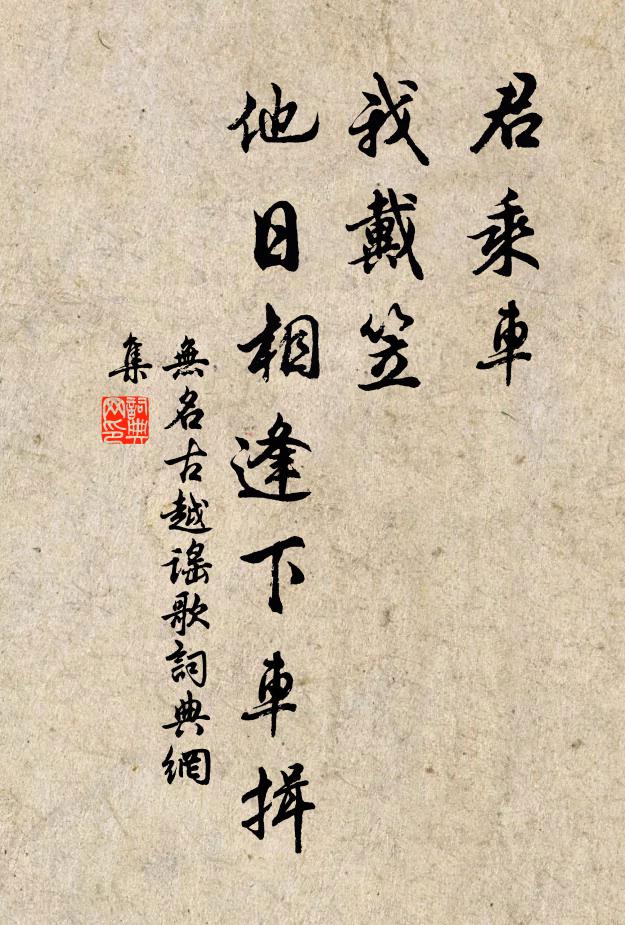 君乘車
我戴笠
他日相逢下車揖
無名古越謠歌詞典網
集
詞典
网印